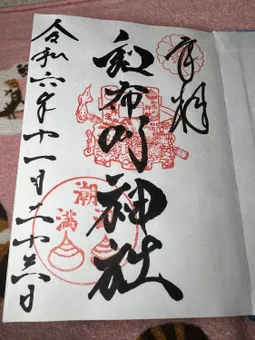 奉拝
和布刈神社
潮
満
令和六年十一月二十六日